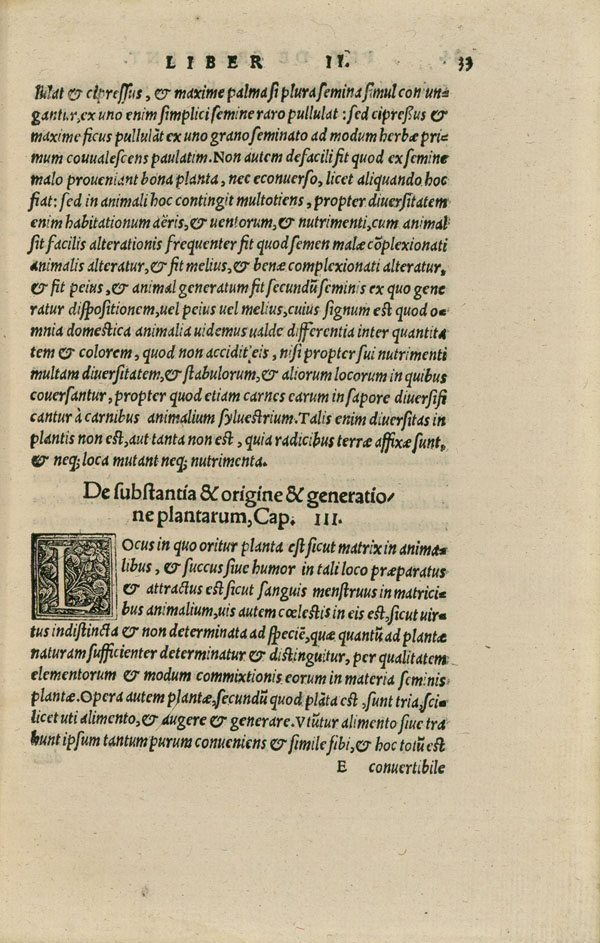 LIBER II. 33
lulat & cipreſſus, & maxime palma si plura semina simul con un-
gantur, ex uno enim simplici semine raro pullulat: sed cipreßus &
maxime ficus pullulāt ex uno grano seminato ad modum herbæ pri-
mum couualescens paulatim. Non autem defacili fit quod ex semine
malo proueniant bona planta, nec econuerso, licet aliquando hoc
fiat: sed in animali hoc contingit multotiens, propter diuersitatem
enim habitationum aëris, & uentorum, & nutrimenti, cum animal
sit facilis alterationis frequenter fit quod semen malæ cōplexionati
animalis alteratur, & fit melius, & benæ complexionati alteratur,
& fit peius, & animal generatum fit secundū seminis ex quo gene
ratur dispositionem, uel peius uel melius, cuius signum est quod o-
mnia domestica animalia uidemus ualde differentia inter quantita
tem & colorem, quod non accidit eis, nisi propter sui nutrimenti
multam diuersitatem, & stabulorum, & aliorum locorum in quibus
couersantur, propter quod etiam carnes earum in sapore diuersifi
cantur à carnibus animalium syluestrium. Talis enim diuersitas in
plantis non est, aut tanta non est, quia radicibus terræ affixæ sunt,
& neq; loca mutant neq; nutrimenta.
De substantia & origine & generatio-
ne plantarum, Cap. III.
LOcus in quo oritur planta est sicut matrix in anima-
libus, & succus siue humor in tali loco præparatus
& attractus est sicut sanguis menstruus in matrici-
bus animalium, uis autem cœlestis in eis est, sicut uir-
tus indistincta & non determinata ad speciē, quæ quantū ad plantæ
naturam sufficienter determinatur & distinguitur, per qualitatem
elementorum & modum commixtionis eorum in materia seminis
plantæ. Opera autem plantæ, secundū quod plāta est, sunt tria, sci-
licet uti alimento, & augere & generare. Vtūtur alimento siue tra
hunt ipsum tantum purum conueniens & simile sibi, & hoc totū est
E convertibile